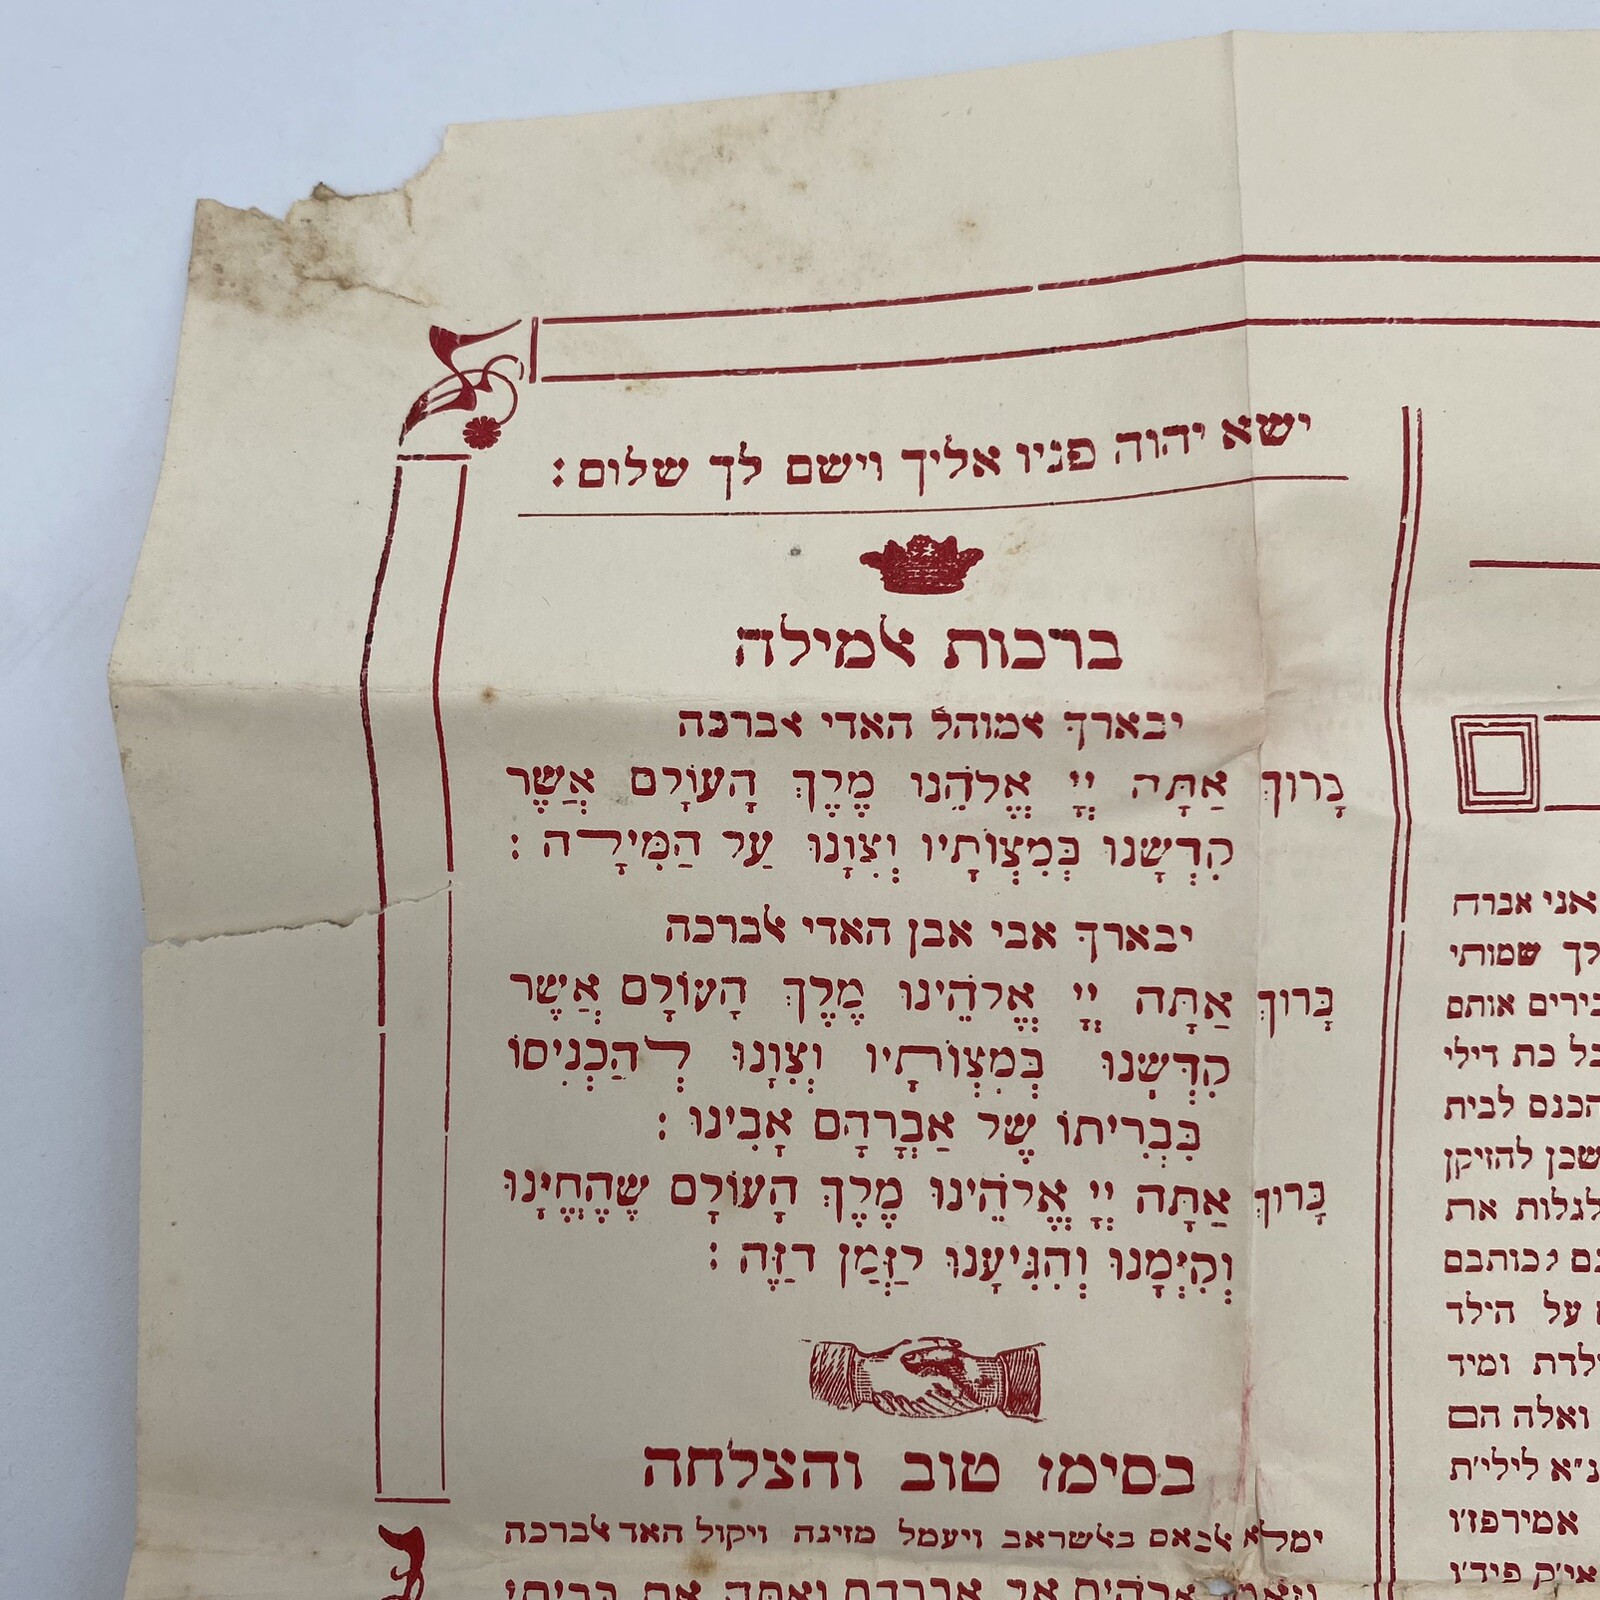 ישא יהוה פניו אליך וישם לך שלום:
ברכות ﭏמילה
יבארך ﭏמוהל האדי ﭏברכה
בָּרוּךְ אַתָּה יְיָ אֱלֹהֵנוּ מֶלֶךְ הָעוֹלָם אֲשֶׁר
קִדְּשָׁנוּ בְּמִצְוֹתָיו וְצִוָנוּ עַל הַמִּילָה :
יבארך אבי אבן האדי ﭏברכה
בָּרוּךְ אַתָּה יְיָ אֱלֹהֵינוּ מֶלֶךְ הָעוֹלָם אֲשֶׁר
קִדְּשָׁנוּ בְּמִצְוֹתָיו וְצִוָנוּ לְהַכְנִיסוֹ
בִּבְרִיתוֹ שֶׁל אַבְרָהָם אָבִינוּ :
בָּרוּךְ אַתָּה יְיָ אֱלֹהֵינוּ מֶלֶךְ הָעוֹלָם שֶׁהֶחֱיָנוּ
וְקִיְּמָנוּ וְהִגִּיעָנוּ לַזְּמַן הַזֶּה :
בסימן טוב והצלחה
ימלא ﭏכאס באﭏשראב ויעמל מזיגה ויקול האד ﭏברכה
ויאמר אלהים אל אברהם ואתה את בריתי
אני אברה
לך שמותי
בירים אותם
כל כת דילי
הכנס לבית
שבן להזיקן
לגלות את
כם לכותבם
על הילד
ילדת ומיד
ואלה הם
נ״א לילי׳ת
אמירפז׳ו
אי׳ק פיד׳ו